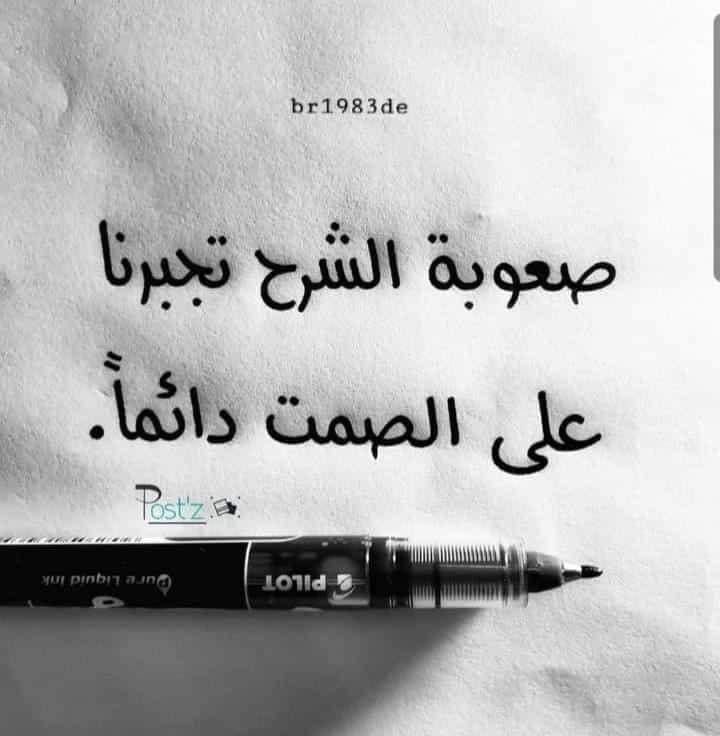 br1983de
صعوبة الشرح تجبرنا
على الصمت دائماً.
Post'z
PILOT
Pure Liquid Ink